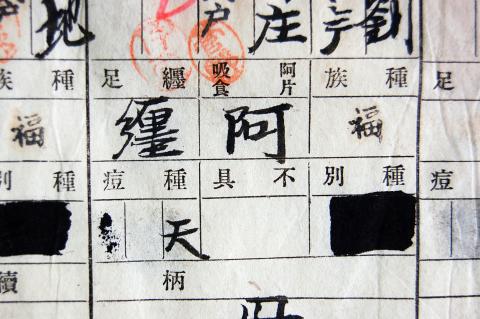 劉
庄
戶
地
足
種族
阿片吸食
纏足
種族
福
阿
纏
福
痘
種別
不具
種痘
種別
天
柄續